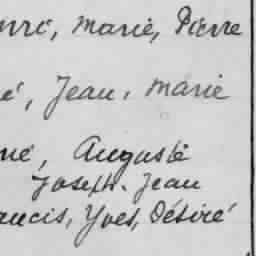 enri, marie, Pierre
é, Jean, marie
né, Auguste
Joseph. Jean
ancis, Yves, Désiré